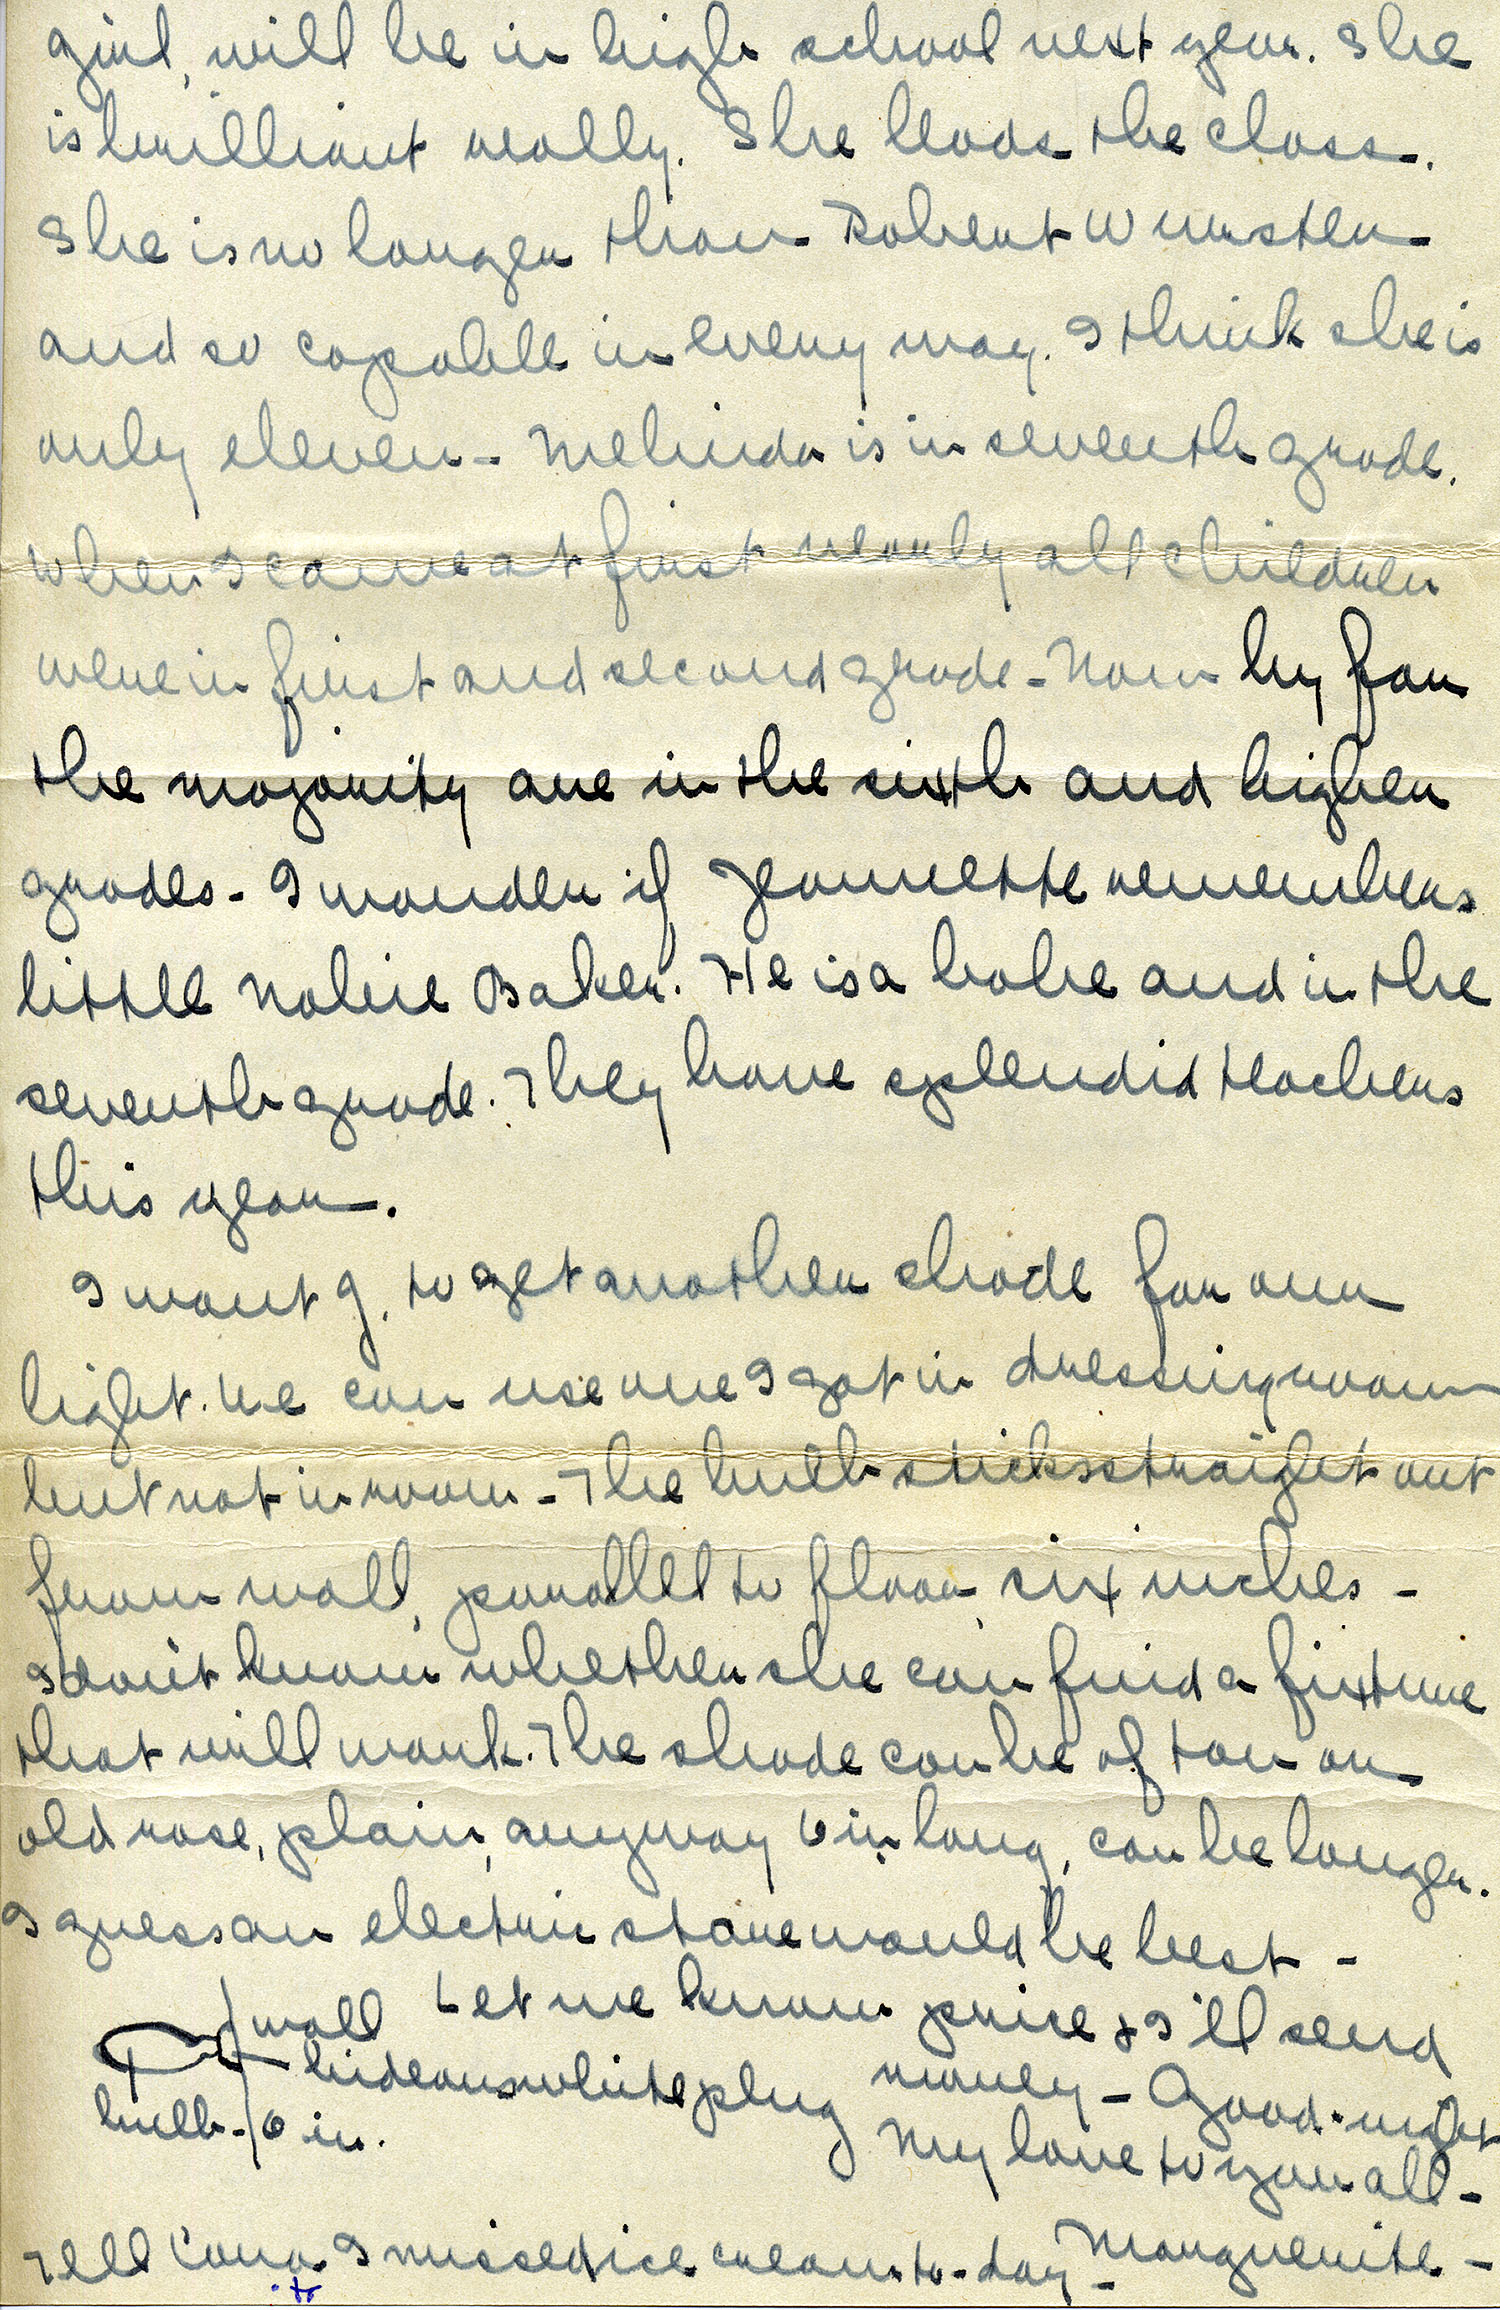 girl, will be in high school next year. She
is brilliant really. She leads the class.
She is no larger than Robert Wurster
and so capable in every way. I think she is
only eleven - Melinda is in seventh grade.
When I came at first nearly all children
were in first and second grade - Now by far
the majority are in the sixth and higher
grades - I wonder if Jeannette remembers
little Baker. He is a babe and in the
seventh grade. They have splendid teachers
this year.
I want J. to get another shade for our
light. We can use one I got in dressing room
but not in room - The bulb sticks straight out
from wall, parallel to floor, six inches -
I don't know whether she can find a fixture
that will work. The shade can be of tan or
old rose, plain, anyway 6 in long, can be longer.
I guess an electric store would be best -
Let me know price & I'll send
money - Good-night
My love to you all -
wall
hideous white plug
bulb - 6 in.
Tell I missed ice cream to-day - Marguerite -